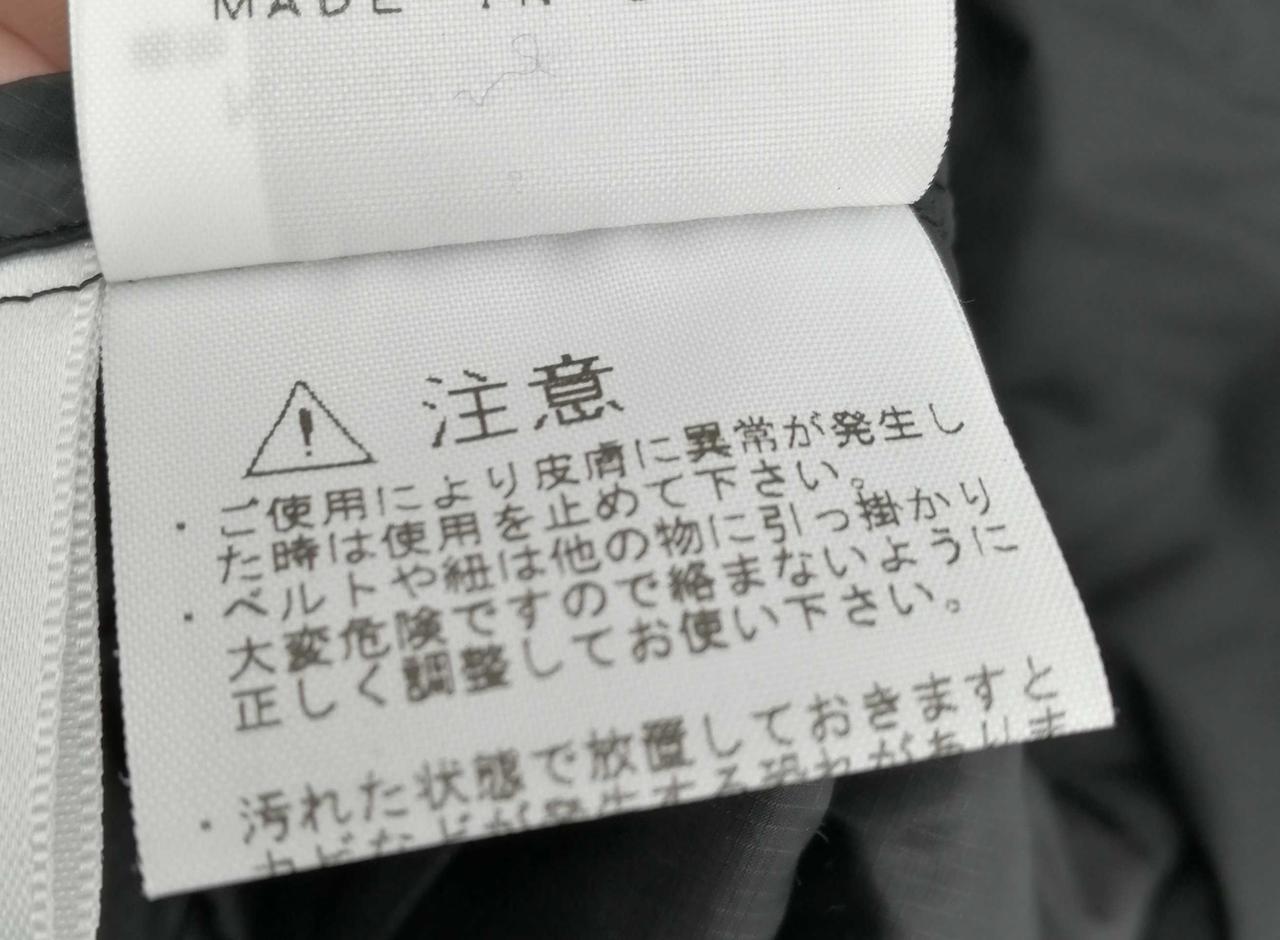 MADE IN
注意
・ご使用により皮膚に異常が発生し
た時は使用を止めて下さい。
・ベルトや紐は他の物に引っ掛かり
大変危険ですので絡まないように
正しく調整してお使い下さい。
・汚れた状態で放置しておきますと
カビなどが発生する恐れがありま